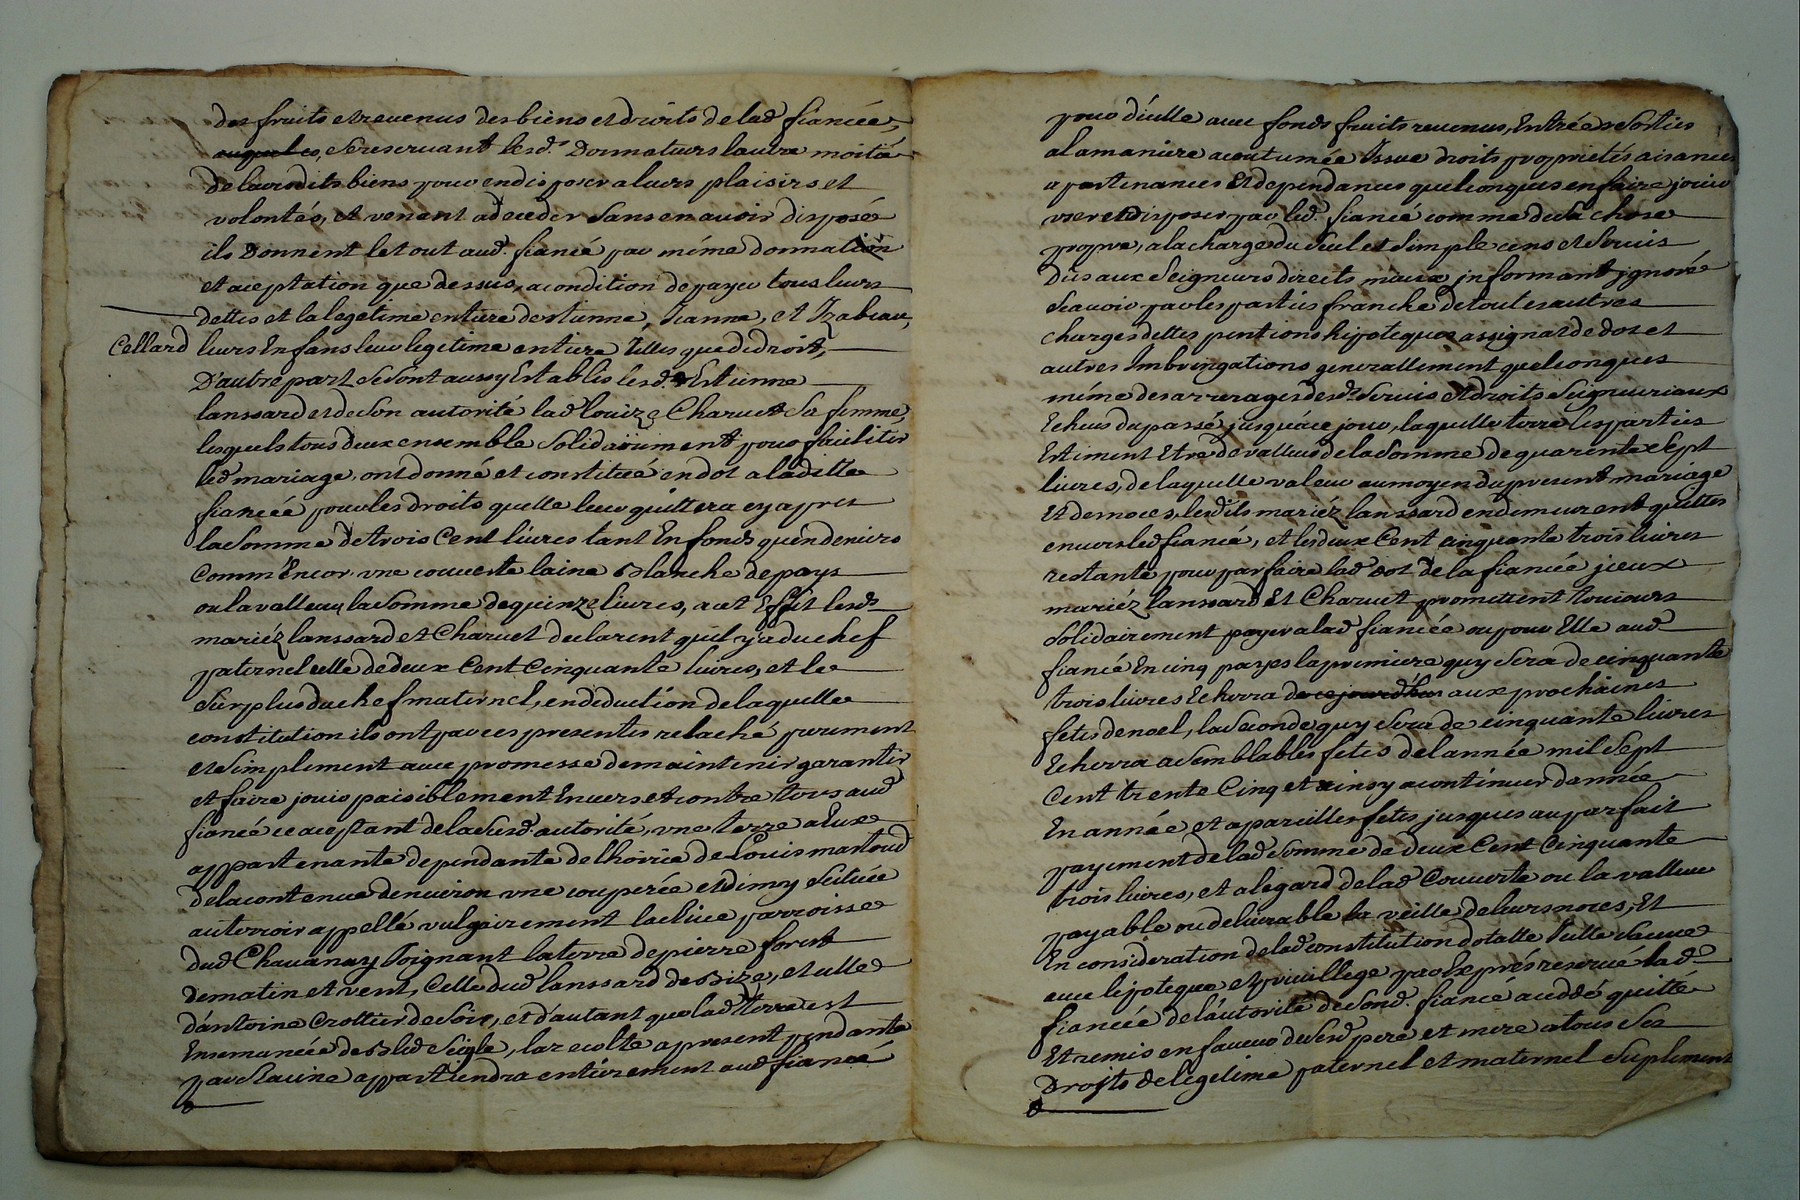 des fruits et revenus des biens et droits de lad fiancée,
auquel cas, se reservant lesd. Donnateurs lautre moitié
de leursdits biens pour en disposer a leurs plaisirs et
volontés, et venant a deceder sans en avoir disposé
ils Donnent le tout aud. fiancé par méme donnation
et aceptation que dessus, a condition de payer tous leurs
dettes et la legetime entiere destienne, Jeanne, et Izabeau,
Cellard leurs Enfans leur legetime entiere telles que de droit,
D'autre part se sont aussy Establis lesd. Estienne
lanssard et de son autorité lad louize Charuet sa femme,
lesquels tous deux ensemble solidairement pour faciliter
led mariage, ont donné et constitué en dot a laditte
fiancéé pour les droits quelle leur quittera cy apres
la somme de trois Cent livres tant En fonds qu'en deniers
comm'Encor une couverte laine Blanche de pays
ou la valleur, la somme de quinze livres, a cet Effet lesds
mariéz lanssard et Charuet declarent quil y a du chef
paternel celle de deux Cent Cinquante livres, et le
surplus du chef maternel, en deduction de laquelle
constitution ils ont par ces presentes relaché purement
et simplement avec promesse de maintenir garantir
et faire jouir paisiblement Envers et contre tous aud
fiancé ce aceptant de la susd. autorité, une terre a Eux
appartenante dependante de lhoirie de Louis martoud
de la contenue denviron une couperée et dimy située
au terroir appellé vulgairement la place parroisse
dud Chavanay Joignant la terre de pierre forest
de matin et vent, Celle dud lanssard de Bize, et celle
d'antoine Crottier de soir, et d'autant que lad terre est
Ensemancée de Bled seigle, la recolte a present pendante
par Racine appartiendra entierement aud fiancé
pour d'icelle avec fonds fruits revenus, Entrées sorties
a la maniere acoutumée Issue droits proprietés aisances
apartenances et dependances quelconques en faire jouir
user et disposer par led. fiancé comme de sa chose
propre, a la charge du seul et simple cens et servis
dus aux seigneurs directs mieux jnformant jgnoré
scavoir par les parties franche de toutes autres
charges dettes pentions hipoteques assignat de dot et
autres Imbringations generallement quelconques
méme des arrerages desds servis et droits seigneuriaux
Echeus du passé jusqu'a ce jour, laquelle terre les parties
Estiment Etre de valleur de la somme de quarente sept
livres, de laquelle valeur au moyen du present mariage
Et des noces, lesdits mariéz lanssard en demeurent quittes
envers led fiancé, et les deux Cent cinquante trois livres
restants pour parfaire lad dot de la fiancéé jceux
mariéz lanssard Et Charuet promettent toujours
solidairement payer a lad fiancée ou pour Elle aud
fiancé En cinq payes la premiere quy sera de cinquante
trois livres Echerra de ce jourd'hui aux prochaines
fetes de noel, la seconde quy sera de cinquante livres
Echerra a semblables fetes de l'année mil sept
Cent trente Cinq et ainsy a continuer d'année
En année, et a pareilles fetes jusques au parfait
payement de lad somme de deux Cent Cinquante
trois livres, et a légard de lad Couverte ou la valleur
payable ou delivrable la veille de leurs noces, Et
En consideration de lad constitution dotalle Icelle sauve
avec hipoteque et privillege par Exprés reserve lad
fiancéé de l'autorité de sond. fiancé a ceddé quitté
Et remis en faveur de sesd pere et mere a tous ses
Droits de legetime paternel et maternel suplement